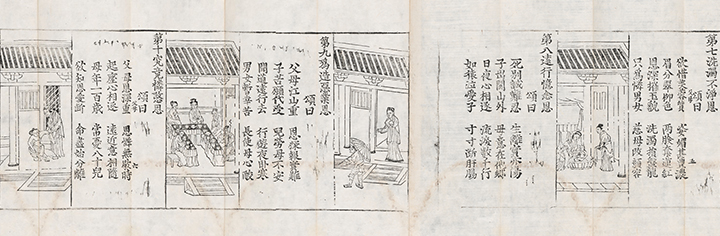 第七洗濯不淨恩
頌曰
憶昔美容質 姿媚甚豊濃
眉分翠柳色 兩臉奪蓮紅
恩深摧玉貌 洗濯損盤龍
只為憐男女 慈母改顔容
第八遠行憶念恩
頌曰
死別誠難忍 生離實亦傷
子出關山外 母意在他鄉
日夜心相逐 流淚數千行
如猿泣愛子 寸寸斷肝腸
第九為造惡業恩
頌曰
父母江山重 恩深報實難
子苦願代受 兒勞母不安
聞道遠行去 行遊夜臥寒
男女暫辛苦 長使母心酸
第十究竟憐愍恩
頌曰
父母恩深重 恩憐無歇時
起座心相逐 遠近意相隨
母年一百歲 常憂八十兒
欲知恩愛斷 命盡始分離